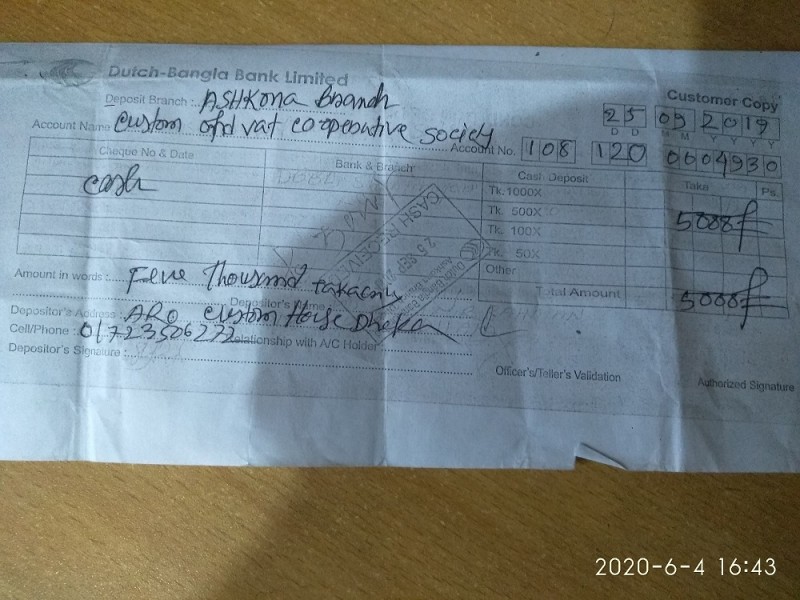 Dutch-Bangla Bank Limited
Customer Copy
Deposit Branch : ASHKona Branch
25 09 2019
D D M M Y Y Y Y
Account Name : Custom and vat co-operative society
Account No. 108 120 0004930
Cheque No & Date Bank & Branch Cash Deposit Taka Ps.
Cash
Tk. 1000X
Tk. 500X 5000/-
Tk. 100X
Tk. 50X
Other
Total Amount 5000/-
CASH RECEIVED
25 SEP
Amount in words : Five Thousand taka only
Depositor's Name
Depositor's Address : ARO Custom House Dhaka
Cell/Phone : 01723506272 Relationship with A/C Holder
Depositor's Signature :
Officer's/Teller's Validation
Authorized Signature
2020-6-4 16:43